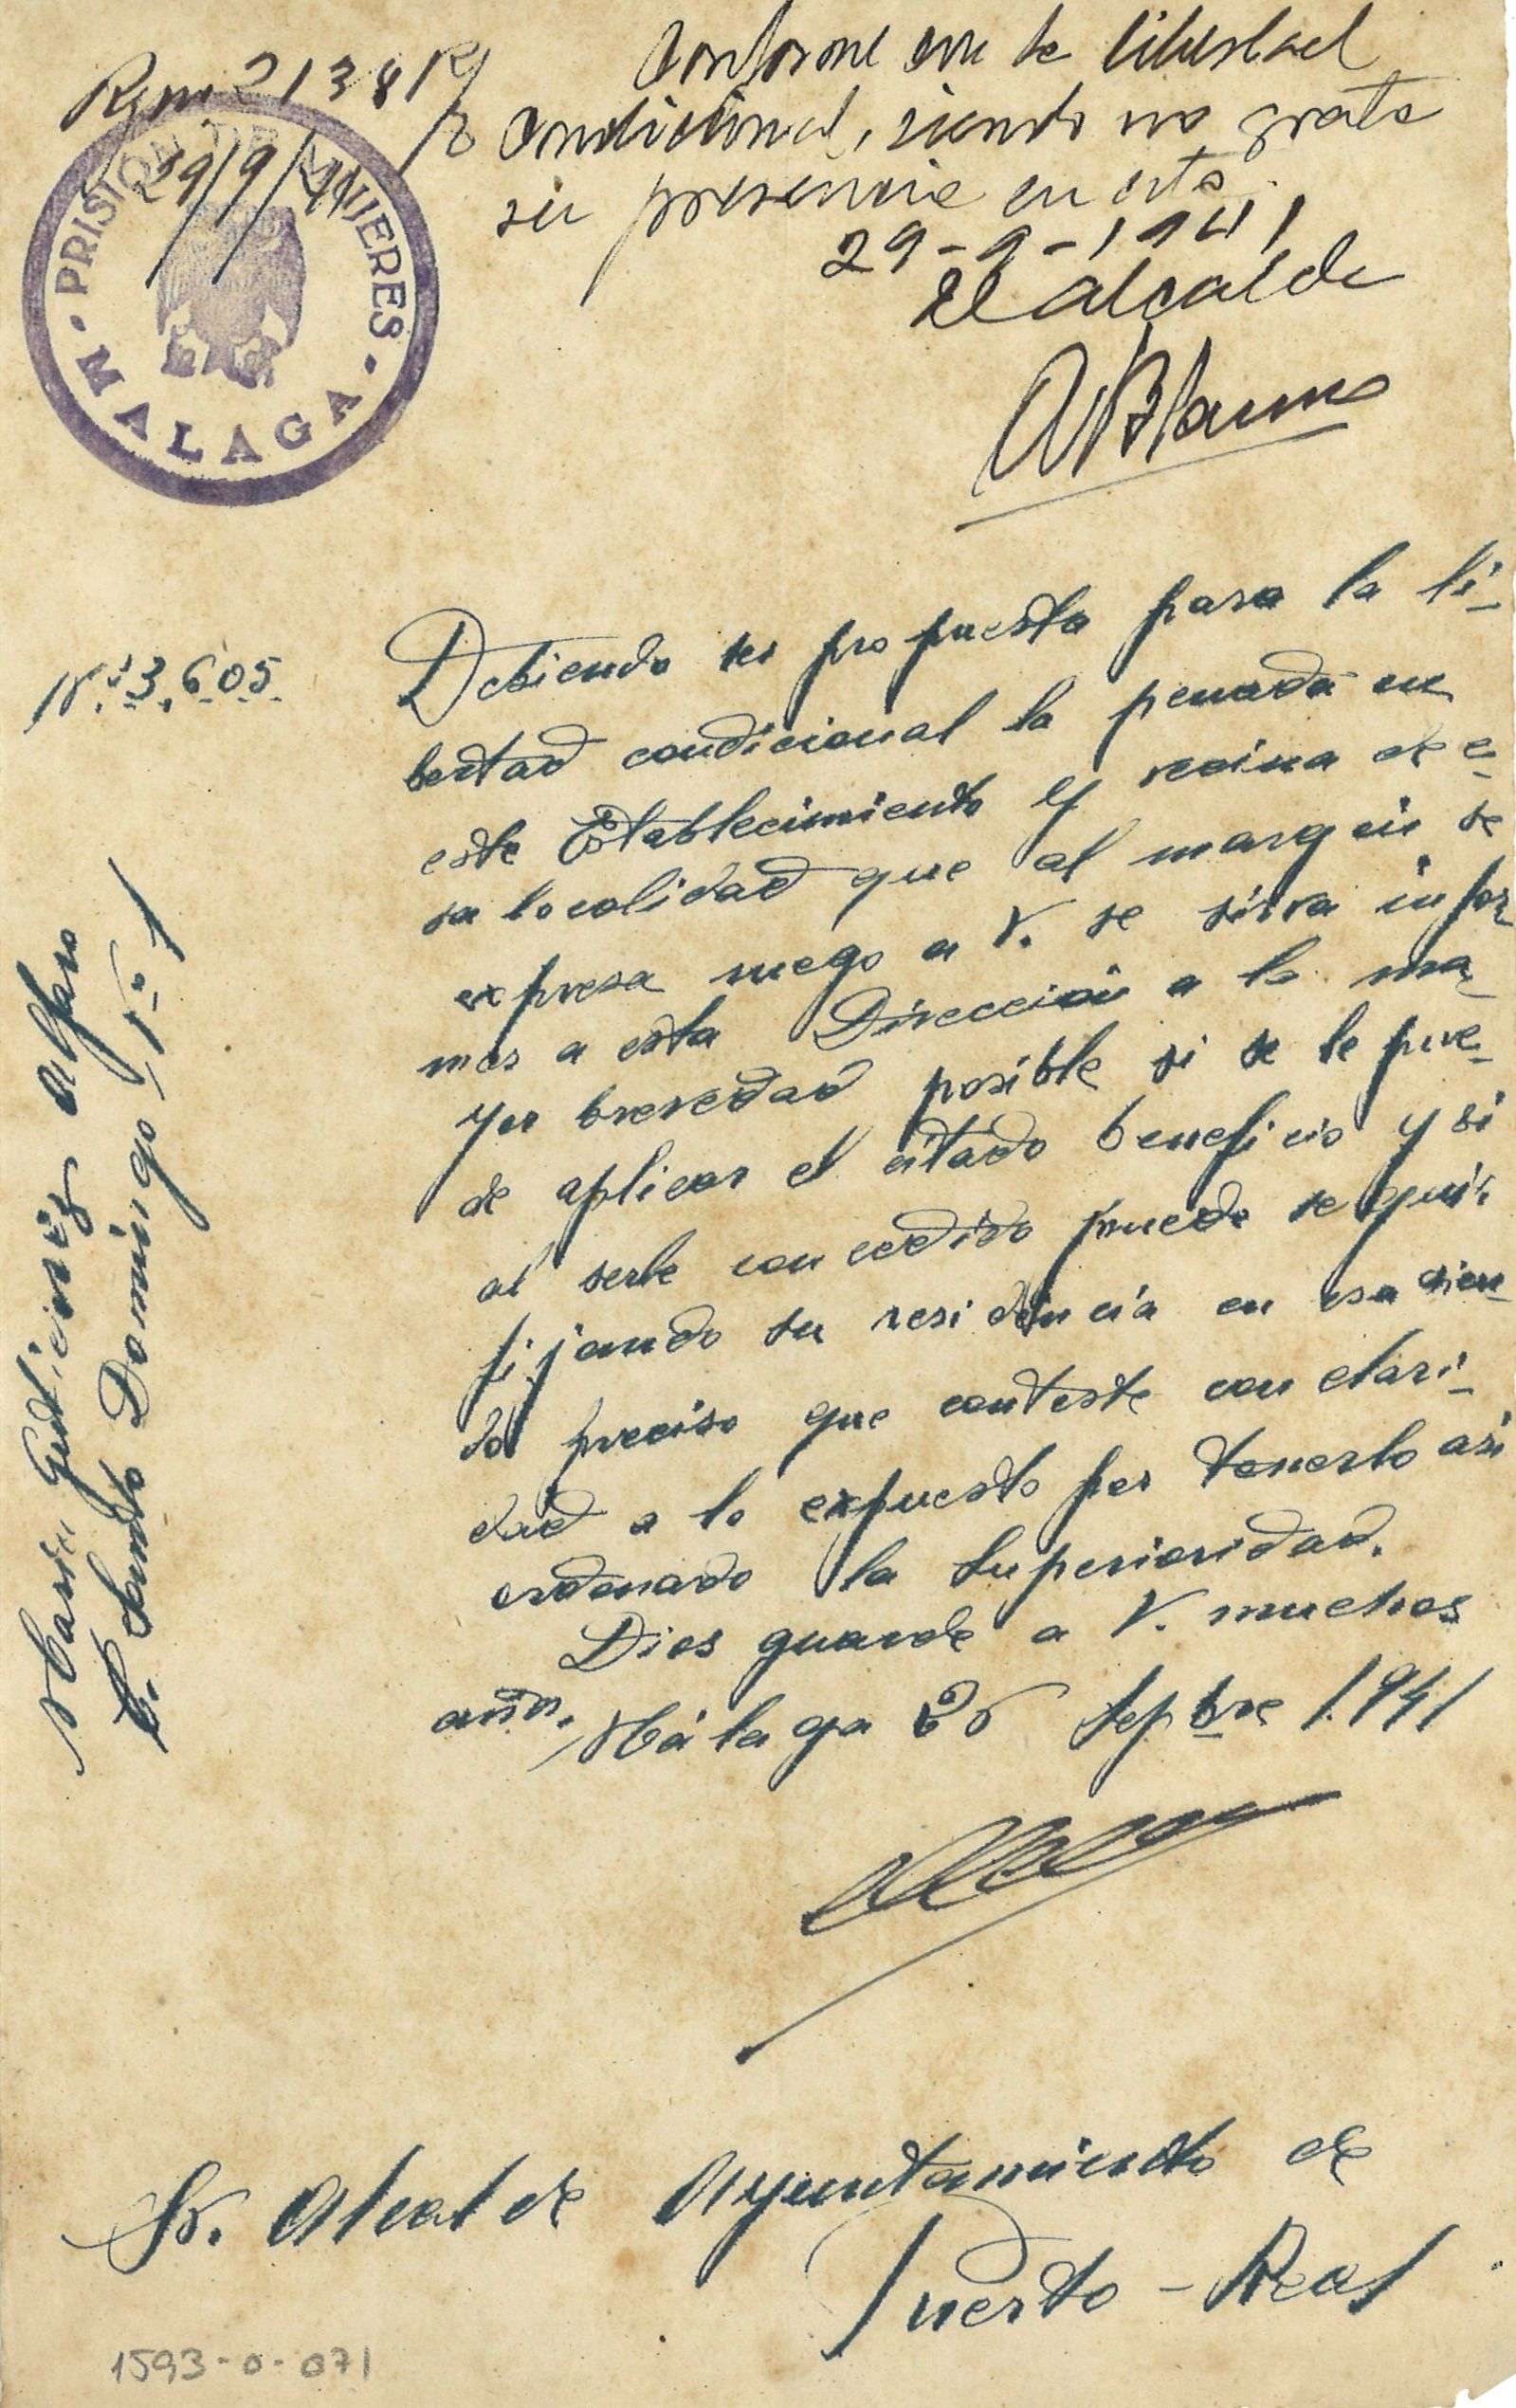 Conforme con la libertad
condicional, siendo no grata
su presencia en esta.
29-9-1941
El Alcalde
29/9/41
PRISION DE MUJERES
MALAGA
Nº 3.605.
Debiendo ser propuesta para la li-
bertad condicional la penada en
este Establecimiento y vecina de e-
sa localidad que al margen se
expresa ruego a V. se sirva infor
mar a esta Dirección a la ma-
yor brevedad posible si se le pue-
de aplicar el citado beneficio y si
al serle concedido puede seguir
fijando su residencia en esa sien-
do preciso que conteste con clari-
dad a lo expuesto por tenerlo asi
ordenado la Superioridad.
Dios guarde a V. muchos
años. Málaga 26 Sepbre 1.941
María Gutierrez Alfaro
C. Santo Domingo - 1º - 1
Sr. Alcalde Ayuntamiento de
Puerto-Real
1593-0-071